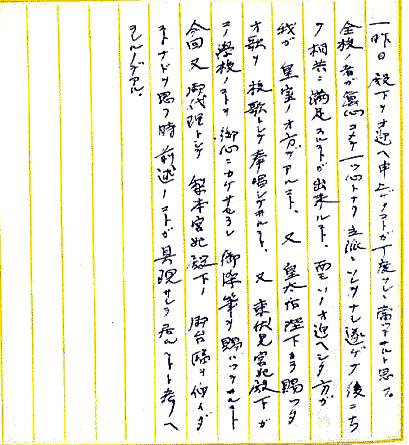 一昨日殿下ヲオ迎ヘ申上ゲタコトガ丁度コレニ当ツテヰルト思フ。
全校ノ者ガ真心コメテ一ツ心トナリ立派ニソレヲナシ遂ゲテ後こち
ラ相共ニ満足スルコトガ出来ルト、而モソノオ迎ヘシタ方ガ
我ガ皇室ノオ方デアルコト、又皇太后陛下カラ賜ツタ
オ歌ヲ校歌トシテ奉唱シテヰルコト、又東伏見宮妃殿下ガ
コノ学校ノコトヲ御心ニカケサセラレ御染筆ヲ賜ハツテヰルコト
今回又御代理トシテ梨本宮妃殿下ノ御台臨ヲ仰イダ
コトナドヲ思フ時前述ノコトガ具現サレテ居ルコトト考ヘ
ラレルノデアル。